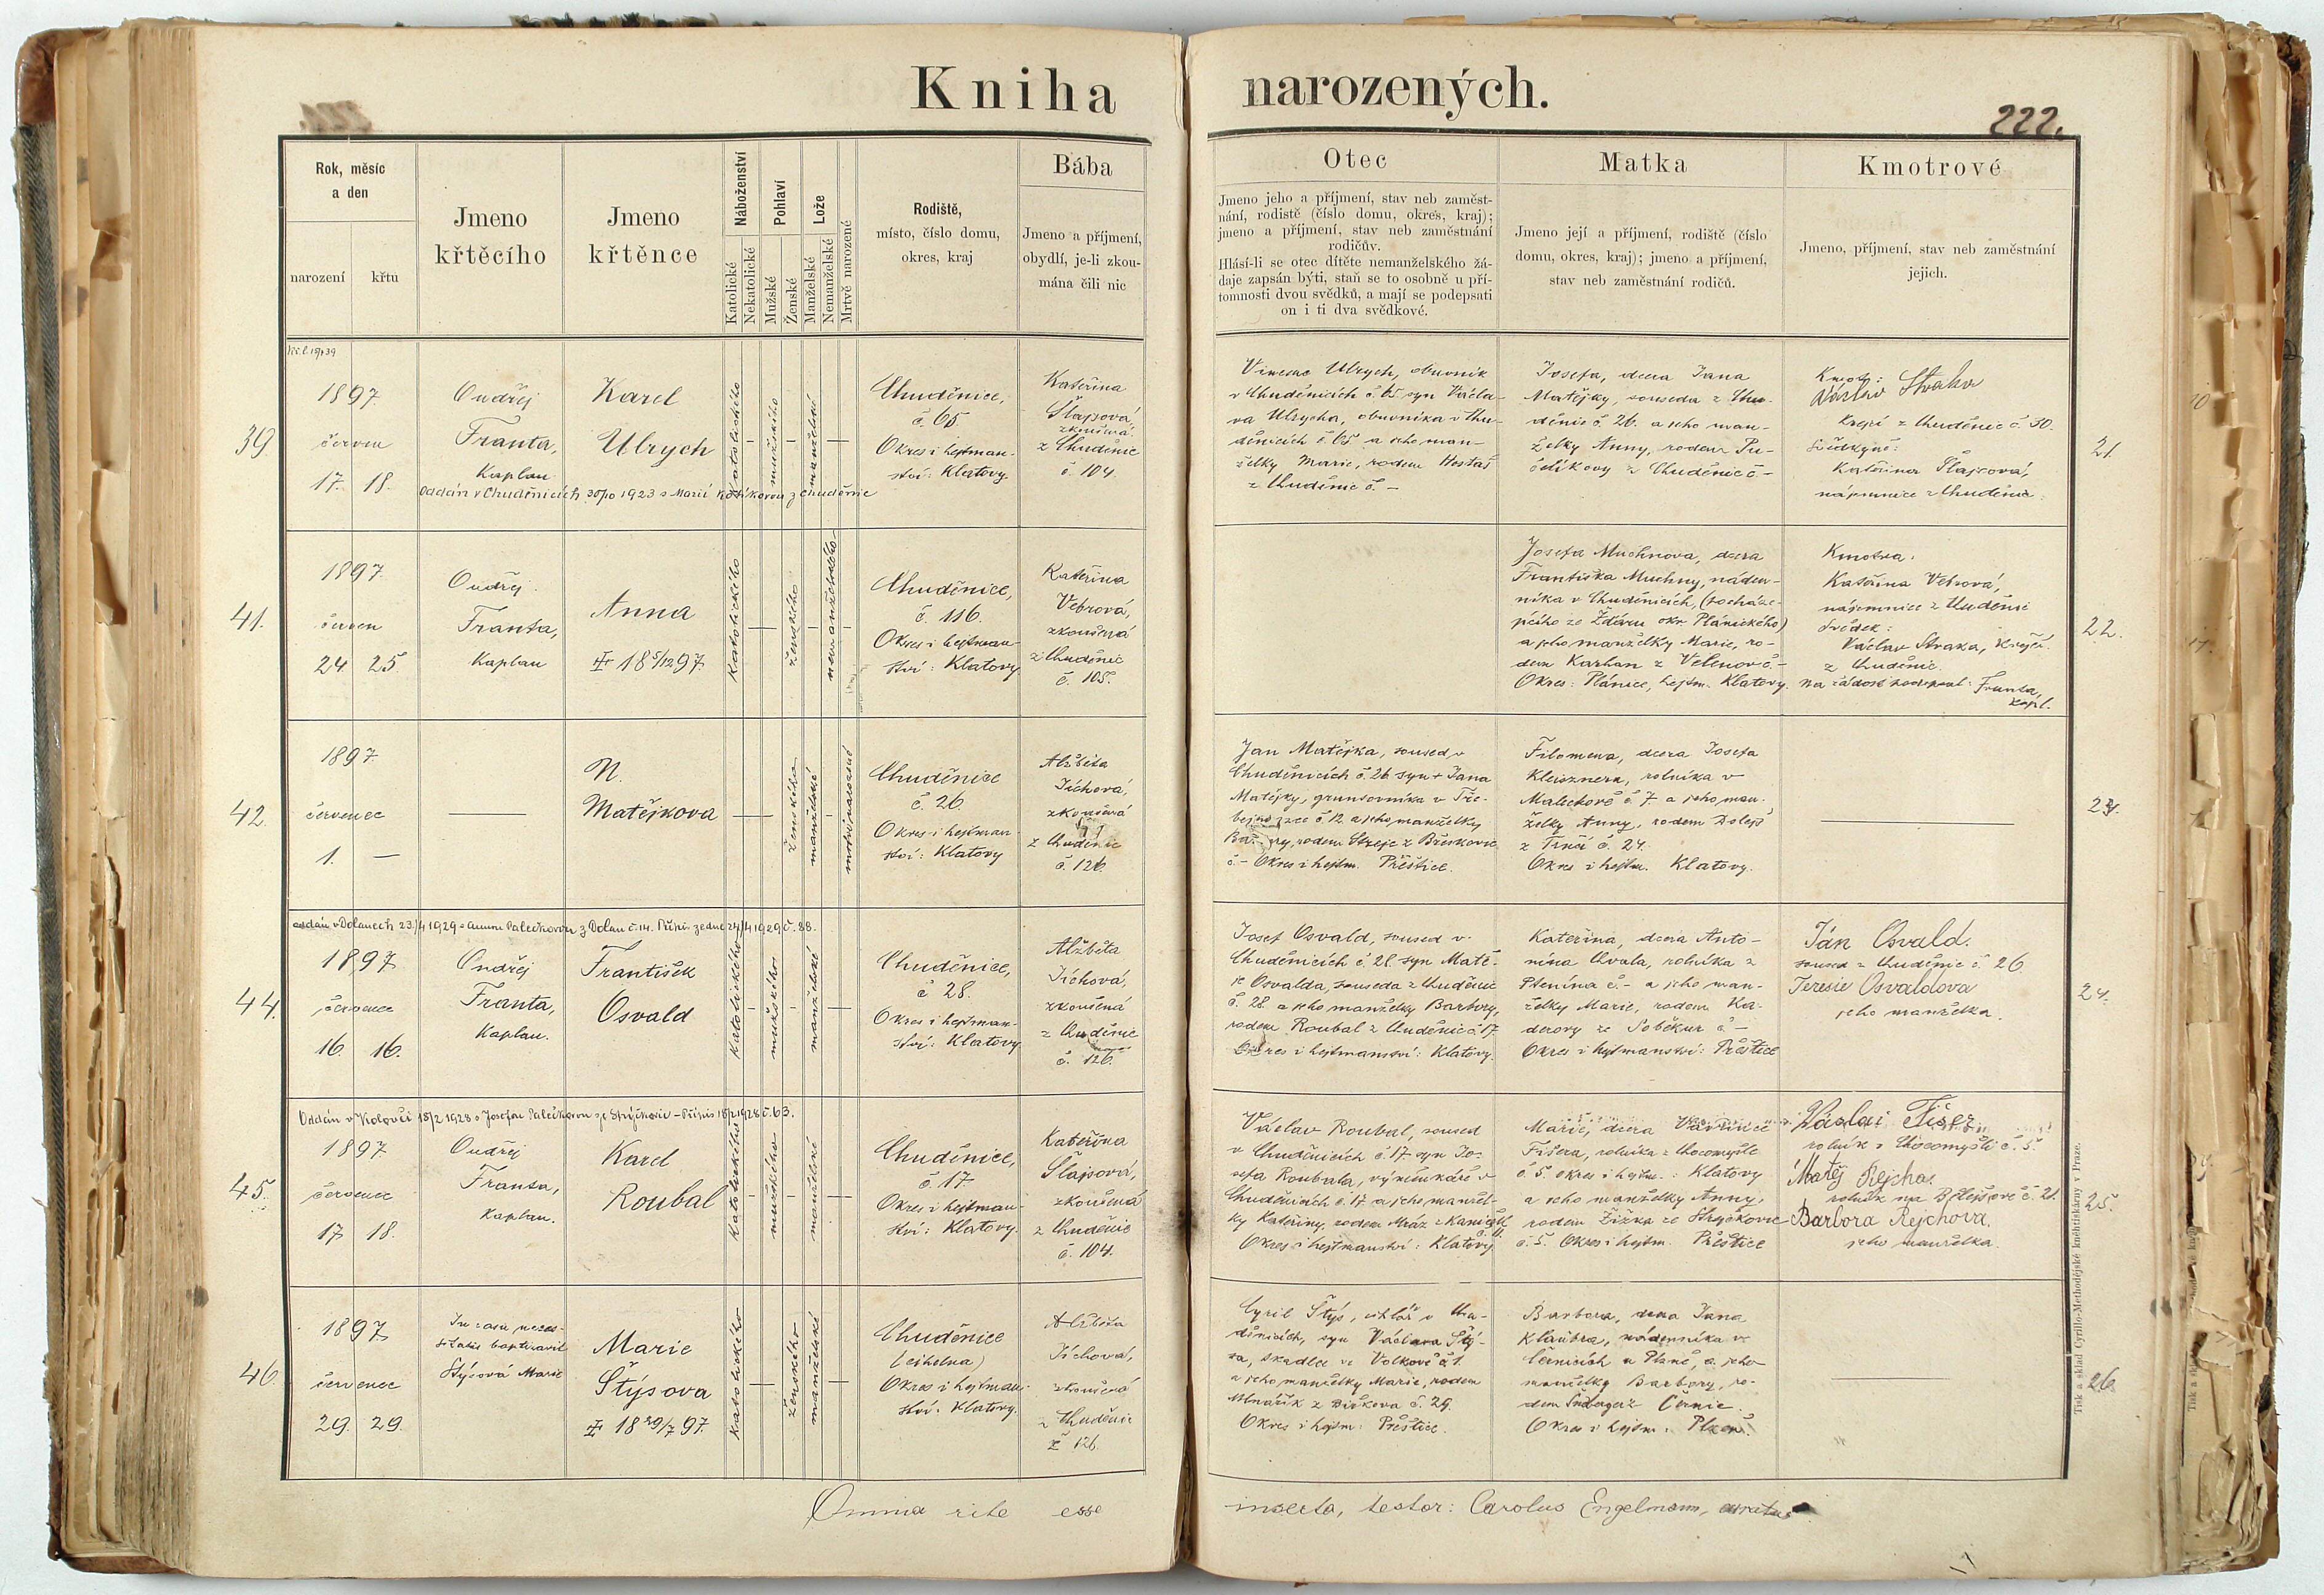 Kniha narozených.
222.
Rok, měsíc
a den
narození
křtu
Jmeno
křtěcího
Jmeno
křtěnce
Náboženství
Katolické
Nekatolické
Pohlaví
Mužské
Ženské
Lože
Manželské
Nemanželské
Mrtvě narozené
Rodiště,
místo, číslo domu,
okres, kraj
Bába
Jmeno a příjmení,
obydlí, je-li zkou-
mána čili nic
Otec
Jmeno jeho a příjmení, stav neb zaměst-
nání, rodistě (číslo domu, okres, kraj);
jmeno a příjmení, stav neb zaměstnání
rodičův.
Hlásí-li se otec dítěte nemanželského žá-
daje zapsán býti, staň se to osobně u pří-
tomnosti dvou svědků, a mají se podepsati
on i ti dva svědkové.
Matka
Jmeno její a příjmení, rodiště (číslo
domu, okres, kraj); jmeno a příjmení,
stav neb zaměstnání rodičů.
Kmotrové
Jmeno, příjmení, stav neb zaměstnání
jejich.
39.
1897
červen
17. 18.
Ondřej
Franta,
Kaplan
Karel
Ulrych
Oddán v Chuděnicích 30/10 1923 s Marií Kotíkovou z Chuděnic
Katolického
mužského
manželské
Chuděnice,
č. 65.
Okres i hejtman-
ství: Klatovy
Kateřina
Šlajsová,
zkoušená
z Chuděnic
č. 104.
Vincenc Ulrych, obuvník
v Chuděnicích č. 65 syn Václa-
va Ulrycha, obuvníka v Chu-
děnicích č. 65 a jeho man-
želky Marie, rodem Hostaš
z Chuděnic č. –
Josefa, dcera Jana
Matějky, souseda z Chu-
děnic č. 26. a jeho man-
želky Anny, rodem Pu-
čelíkovy z Chuděnic č –
Kmotr:
Václav Straka
krejčí z Chuděnic č. 30.
Svědkyně:
Kateřina Šlajsová,
nájemnice z Chuděnic.
21.
41.
1897
červen
24 25
Ondřej
Franta,
Kaplan
Anna
18 5/12 97.
Katolického
ženského
nemanželského
Chuděnice,
č. 116.
Okres i hejtman-
ství: Klatovy.
Kateřina
Vebrová,
zkoušená
z Chuděnic
č. 105.
Josefa Muchnova, dcera
Františka Muchny, náden-
níka v Chuděnicích, (pocháze-
jícího ze Ždáru okr. Plánického)
a jeho manželky Marie, ro-
dem Karhan z Velenov č. –
Okres: Plánice, hejtm. Klatovy.
Kmotra:
Kateřina Vebrová,
nájemnice z Chuděnic
Svědek:
Václav Straka, krejčí
z Chuděnic.
Na žádost podepsal: Franta,
kapl.
22.
42.
1897
červenec
1. –
N.
Matějkova
ženského
manželské
mrtvě narozené
Chuděnice
č. 26.
Okres i hejtman-
ství: Klatovy
Alžběta
Jíchová,
zkoušená
z Chuděnic
č. 126.
Jan Matějka, soused v
Chuděnicích č. 26 syn + Jana
Matějky, gruntovníka v Tře-
č. 12 a jeho manželky
rodem Streje z Břeskovic
č. – Okres i hejtm. Přeštice.
Filomena, dcera Josefa
Kleisznera, rolníka v
Malechově č. 7 a jeho man-
želky Anny, rodem Dolejš
z č. 24.
Okres i hejtm. Klatovy.
23.
44.
oddán v Dolanech 23/4 1929 s Annou Palečkovou z Dolan č. 14. Přípis ze dne 24/4 1929 č. 88.
1897
červenec
16. 16.
Ondřej
Franta,
Kaplan.
František
Osvald
Katolického
mužského
manželské
Chuděnice,
č 28.
Okres i hejtman-
ství: Klatovy
Alžběta
Jíchová,
zkoušená
z Chuděnic
č. 126.
Josef Osvald, soused v
Chuděnicích č. 28. syn Matě-
je Osvalda, souseda z Chuděnic
č. 28 a jeho manželky Barbory,
rodem Roubal z Chuděnic č. 17.
Okres i hejtmanství: Klatovy.
Kateřina, dcera Anto-
nína Chvala, rolníka z
Ptenína č. – a jeho man-
želky Marie, rodem Ka-
derovy ze Soběkur č –
Okres i hejtmanství: Přeštice
Ján Osvald.
soused z Chuděnic č. 26.
Teresie Osvaldova
jeho manželka.
24.
45.
Oddán v Kolovči 18/2 1928 s Josefou Palečkovou ze Strýčkovic – Přípis 18/2 1928 č. 63.
1897
červenec
17 18.
Ondřej
Franta,
Kaplan.
Karel
Roubal
Katolického
mužského
manželské
Chuděnice,
č. 17
Okres i hejtman-
ství: Klatovy.
Kateřina
Šlajsová,
zkoušená
z Chuděnic
č. 104.
Václav Roubal, soused
v Chuděnicích č. 17. syn Jo-
sefa Roubala, výměnkáře v
Chuděnicích č. 17 a jeho manžel-
ky Kateřiny, rodem Mráz z
Okres i hejtmanství: Klatovy
Marie, dcera Vavřince
Fišera, rolníka z Chocomyšle
č. 5. okres i hejtm.: Klatovy
a jeho manželky Anny,
rodem Žižka ze Strýčkovic
č. 5. Okres i hejtm. Přeštice
Václav Fišer
rolník z Chocomyšli č. 5.
Matěj Rejcha.
rolník na č. 21.
Barbora Rejchova.
jeho manželka.
25.
46.
1897
červenec
29. 29.
In casu neces-
sitatis baptizavit
Štýsová Marie
Marie
Štýsova
18 29/7 97.
Katolického
ženského
manželské
Chuděnice
(cihelna)
Okres i hejtman-
ství: Klatovy.
Alžběta
Jíchová,
zkoušená
z Chuděnic
č 126.
Cyril Štýs, cihlář v Chu-
děnicích, syn Václava Štý-
sa, skadlec ve Volkově č. 1.
a jeho manželky Marie, rodem
Mlnářík z Birkova č. 29.
Okres i hejtm: Přeštice.
Barbora, dcera Jana
Klaubra, nádenníka v
Černicích u Plzně, a jeho
manželky Barbory, ro-
dem z Černic.
Okres i hejtm: Plzeň.
26.
Omnia rite esse inserta, testor: Carolus Engelmann, curatus
Tisk a sklad Cyrillo-Methodějské kněhtiskárny v Praze.